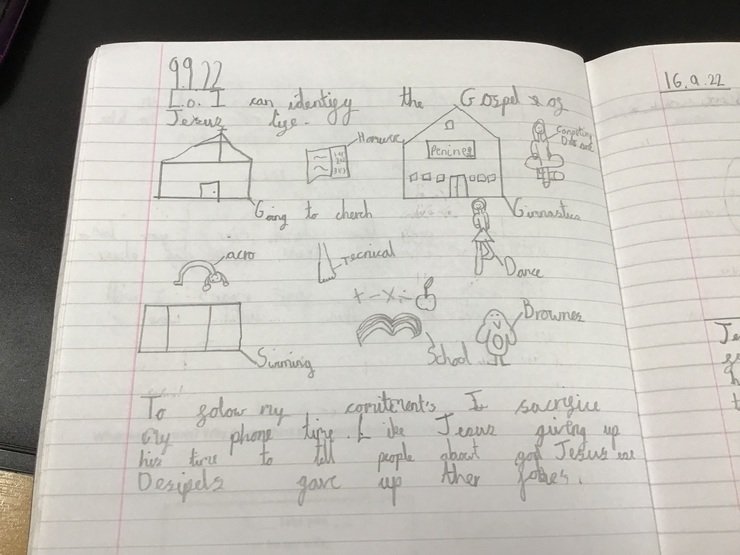 9.9.22
16.9.22
L.o. I can identify the Gospel & of
Jesus
Homwork
Penines
Compettion
Going to cherch
Gimnastics
acro
Tecnical
Dance
+ - x ÷
Brownes
School
Swiming
To folow my comitements I sacrifice
my phone time. Like Jesus giving up
his time to tell people about god Jesus
Desipels gave up ther jobes.
Je